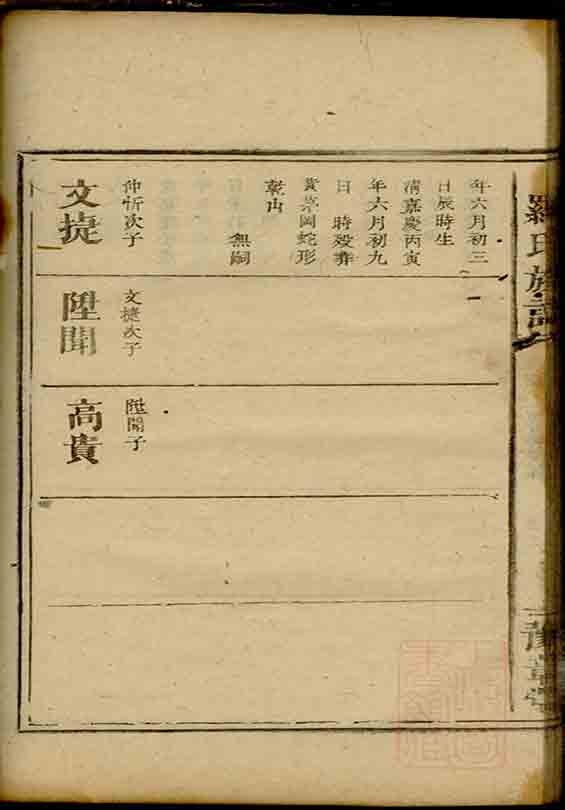 羅氏族譜
豫章堂
年六月初三
日辰時生
清嘉慶丙寅
年六月初九
日 時歿葬
黃茅岡蛇形
乾山
無嗣
仲忻次子
文捷
文捷次子
陞聞
陞聞子
高貴